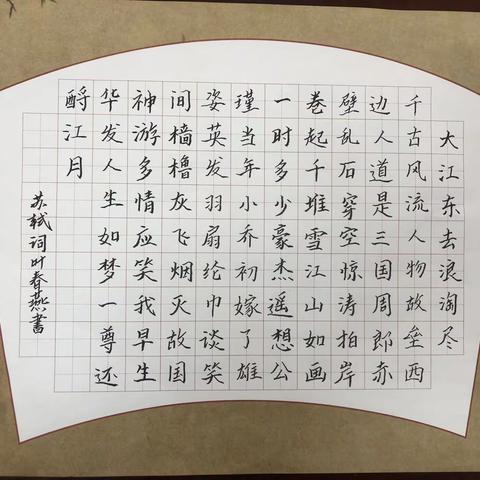 大江东去浪淘尽
千古风流人物故垒西
边人道是三国周郎赤
壁乱石穿空惊涛拍岸
卷起千堆雪江山如画
一时多少豪杰遥想公
瑾当年小乔初嫁了雄
姿英发羽扇纶巾谈笑
间樯橹灰飞烟灭故国
神游多情应笑我早生
华发人生如梦一尊还
酹江月
苏轼词叶春燕書